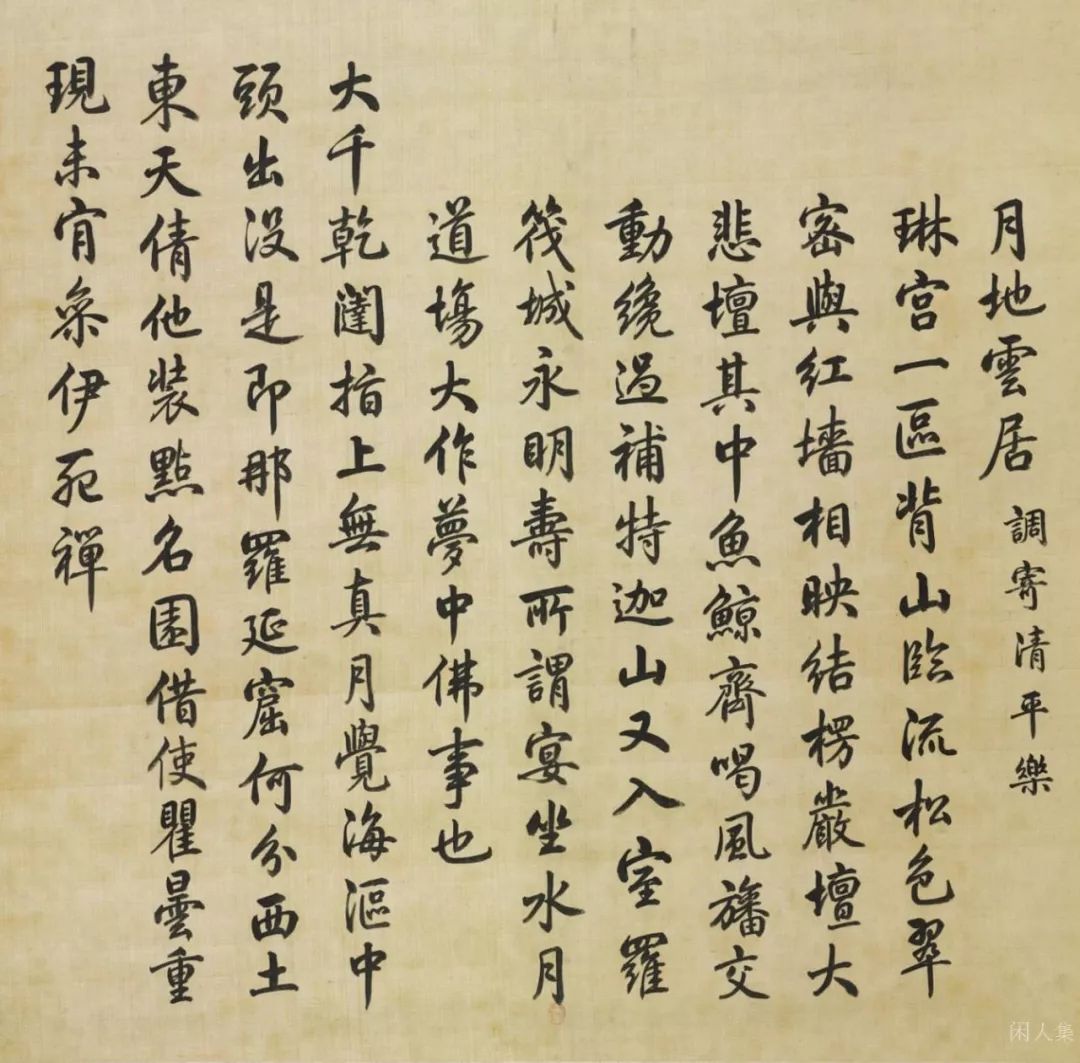 月地雲居 調寄清平樂
琳宫一區背山臨流松色翠
密與紅墻相映結楞嚴壇大
悲壇其中魚鯨齊喝風旛交
動纔過補特迦山又入室羅
筏城永明壽所謂宴坐水月
道場大作夢中佛事也
大千乾闥指上無真月覺海漚中
頭出沒是即那羅延窟何分西土
東天倩他裝點名園借使瞿曇重
現未肯參伊死禪
闲人集